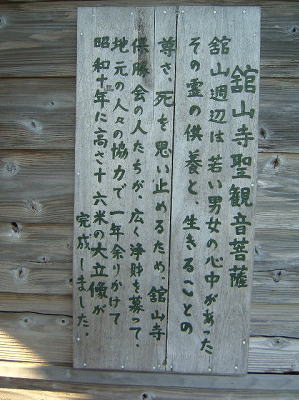 舘山寺聖観音菩薩
舘山週辺は若い男女の心中があった
その霊の供養と 生きることの
尊さ、死を思い止めるため、舘山寺
保勝会の人たちが、広く浄財を募って、
地元の人々の協力で一年余りかけて
昭和十年に高さ十六米の大立像が
完成しました。